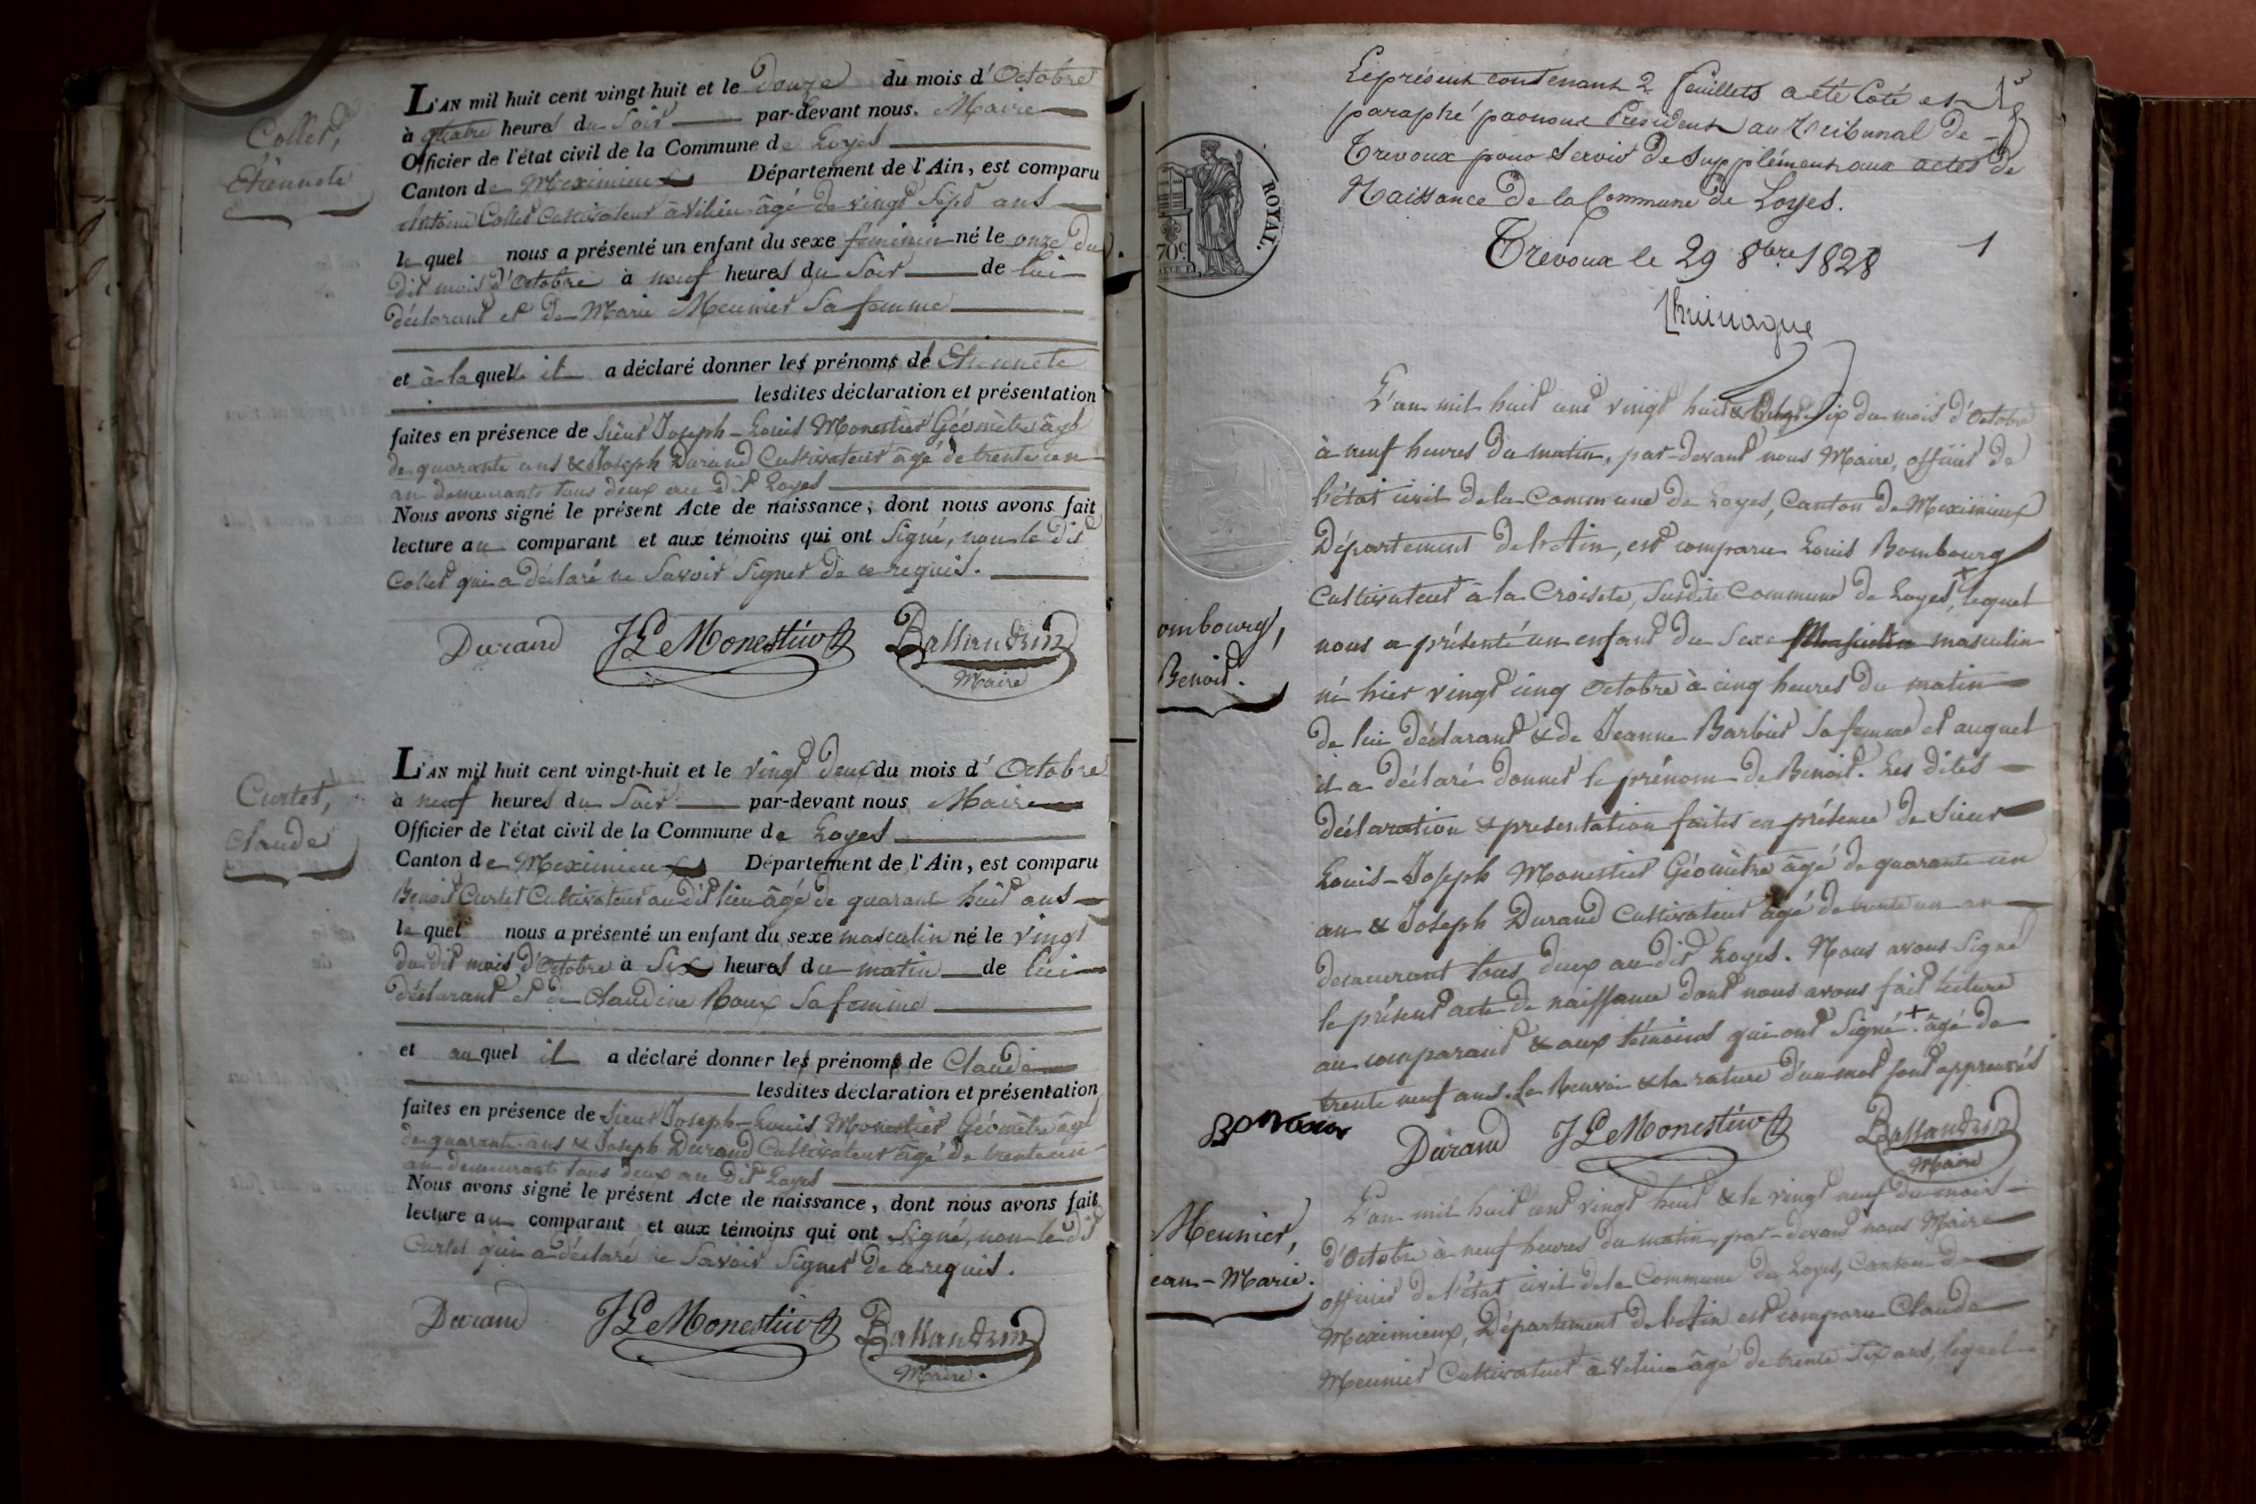 Collet,
Etiennete
L'AN mil huit cent vingt huit et le douze du mois d'Octobre
à quatre heures du soir par-devant nous. Maire
Officier de l'état civil de la Commune de Loyes
Canton de Meximieux Département de l'Ain, est comparu
Antoine Collet Cultivateur à Vilieu âgé de vingt sept ans
le quel nous a présenté un enfant du sexe feminin né le onze du
dit mois d'Octobre à neuf heures du soir de lui
déclarant et de Marie Meunier sa femme
et à la quelle il a déclaré donner les prénoms de Etiennete
lesdites déclaration et présentation
faites en présence de Sieur Joseph-Louis Monestier Géomètre âgé
de quarante ans & Joseph Durand Cultivateur âgé de trente un
an demeurants tous deux au dit Loyes
Nous avons signé le présent Acte de naissance, dont nous avons fait
lecture au comparant et aux témoins qui ont signé, non le dit
Collet qui a déclaré ne savoir signer de ce requis.
Durand JL Monestier Ballandrin
Maire
Curtet,
Claude
L'AN mil huit cent vingt-huit et le vingt deux du mois d'Octobre
à neuf heures du soir par-devant nous Maire
Officier de l'état civil de la Commune de Loyes
Canton de Meximieux Département de l'Ain, est comparu
Benoit Curtet Cultivateur au dit lieu âgé de quarant huit ans
le quel nous a présenté un enfant du sexe masculin né le vingt
du dit mois d'Octobre à six heures du matin de lui
déclarant et de Claudine Roux sa femme
et au quel il a déclaré donner les prénoms de Claude
lesdites déclaration et présentation
faites en présence de Sieur Joseph-Louis Monestier Géomètre âgé
de quarante ans & Joseph Durand Cultivateur âgé de trente un
an demeurants tous deux au dit Loyes
Nous avons signé le présent Acte de naissance, dont nous avons fait
lecture au comparant et aux témoins qui ont signé, non le dit
Curtet qui a déclaré ne savoir signer de ce requis.
Durand JL Monestier Ballandrin
Maire.
ROYAL.
70 c.
Le présent contenant 2 feuillets a été Coté et
paraphé par nous Président au Tribunal de
Trevoux pour servir de supplément aux actes de
Naissance de la Commune de Loyes.
Trévoux le 29 8bre 1828
1
L'an mil huit cent vingt huit & le vingt six du mois d'Octobre
à neuf heures du matin, par-devant nous Maire, officier de
l'état civil de la Commune de Loyes, Canton de Meximieux
Département de l'Ain, est comparu Louis Bombourg
Cultivateur à la Croisete, susdite Commune de Loyes,+ lequel
nous a présenté un enfant du sexe masculin
né hier vingt cinq Octobre à cinq heures du matin
de lui déclarant & de Jeanne Barbier sa femme et auquel
il a déclaré donner le prénom de Benoit. Les dites
déclaration & presentation faites en présence de Sieur
Louis-Joseph Monestier Géomètre âgé de quarante un
an & Joseph Durand Cultivateur âgé de trente un an
demeurant tous deux au dit Loyes. Nous avons signé
le présent acte de naissance dont nous avons fait lecture
au comparant & aux témoins qui ont signé.+ âgé de
trente neuf ans. Le renvoi & la rature d'un mot sont approuvés
ombourg,
Benoit.
Durand JL Monestier Ballandrin
Maire
Meunier,
ean-Marie.
L'an mil huit cent vingt huit & le vingt neuf du mois
d'Octobre à neuf heures du matin, par-devant nous Maire
officier de l'état civil de la Commune de Loyes, Canton de
Meximieux, Département de l'Ain est comparu Claude
Meunier Cultivateur à Vilieu âgé de trente six ans, lequel